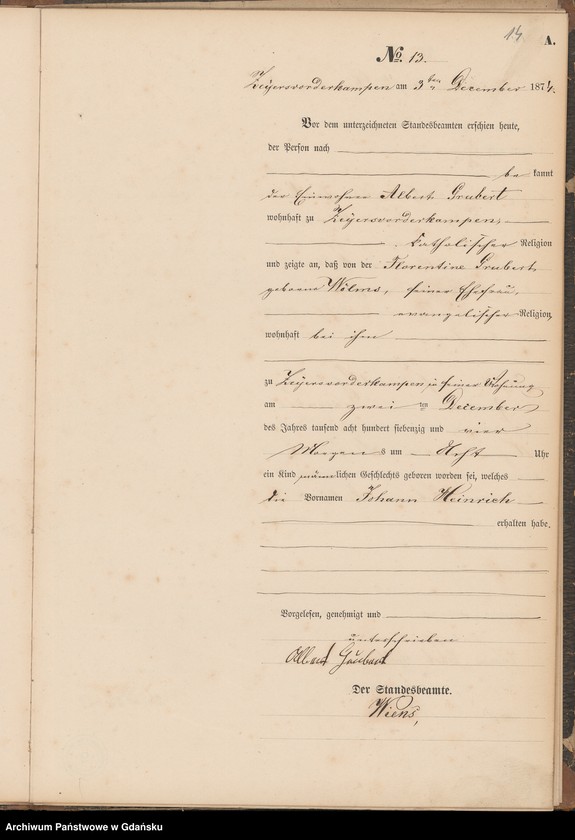 14
A.
No. 13.
Zeyersvorderkampen am 3ten December 1874.
Vor dem unterzeichneten Standesbeamten erschien heute,
der Person nach
be kannt
der Einwohner Albert Grubert
wohnhaft zu Zeyersvorderkampen,
katholischer Religion
und zeigte an, daß von der Florentine Grubert,
geborene Wölms, seiner Ehefrau,
evangelischer Religion,
wohnhaft bei ihm
zu Zeyersvorderkampen in seiner Wohnung
am zwei ten December
des Jahres tausend acht hundert siebenzig und vier
Morgen s um Acht Uhr
ein Kind männlichen Geschlechts geboren worden sei, welches
die Vornamen Johann Heinrich
erhalten habe.
Vorgelesen, genehmigt und
unterschrieben
Albert Grubert
Der Standesbeamte.
Wiens,
Archiwum Państwowe w Gdańsku